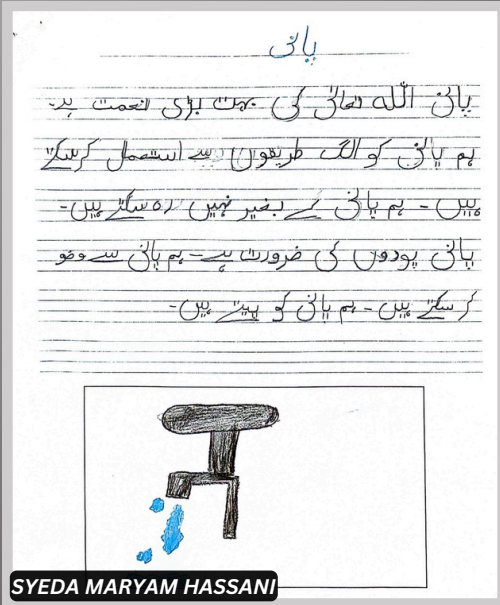 پانی
پانی اللّہ تعالیٰ کی بہت بڑی نعمت ہے۔
ہم پانی کو الگ طریقوں سے استعمال کرسکتے
ہیں ۔ ہم پانی کے بغیر نہیں رہ سکتے ہیں۔
پانی پودوں کی ضرورت ہے۔ ہم پانی سے وضو
کر سکتے ہیں ۔ ہم پانی کو پیتے ہیں۔
SYEDA MARYAM HASSANI